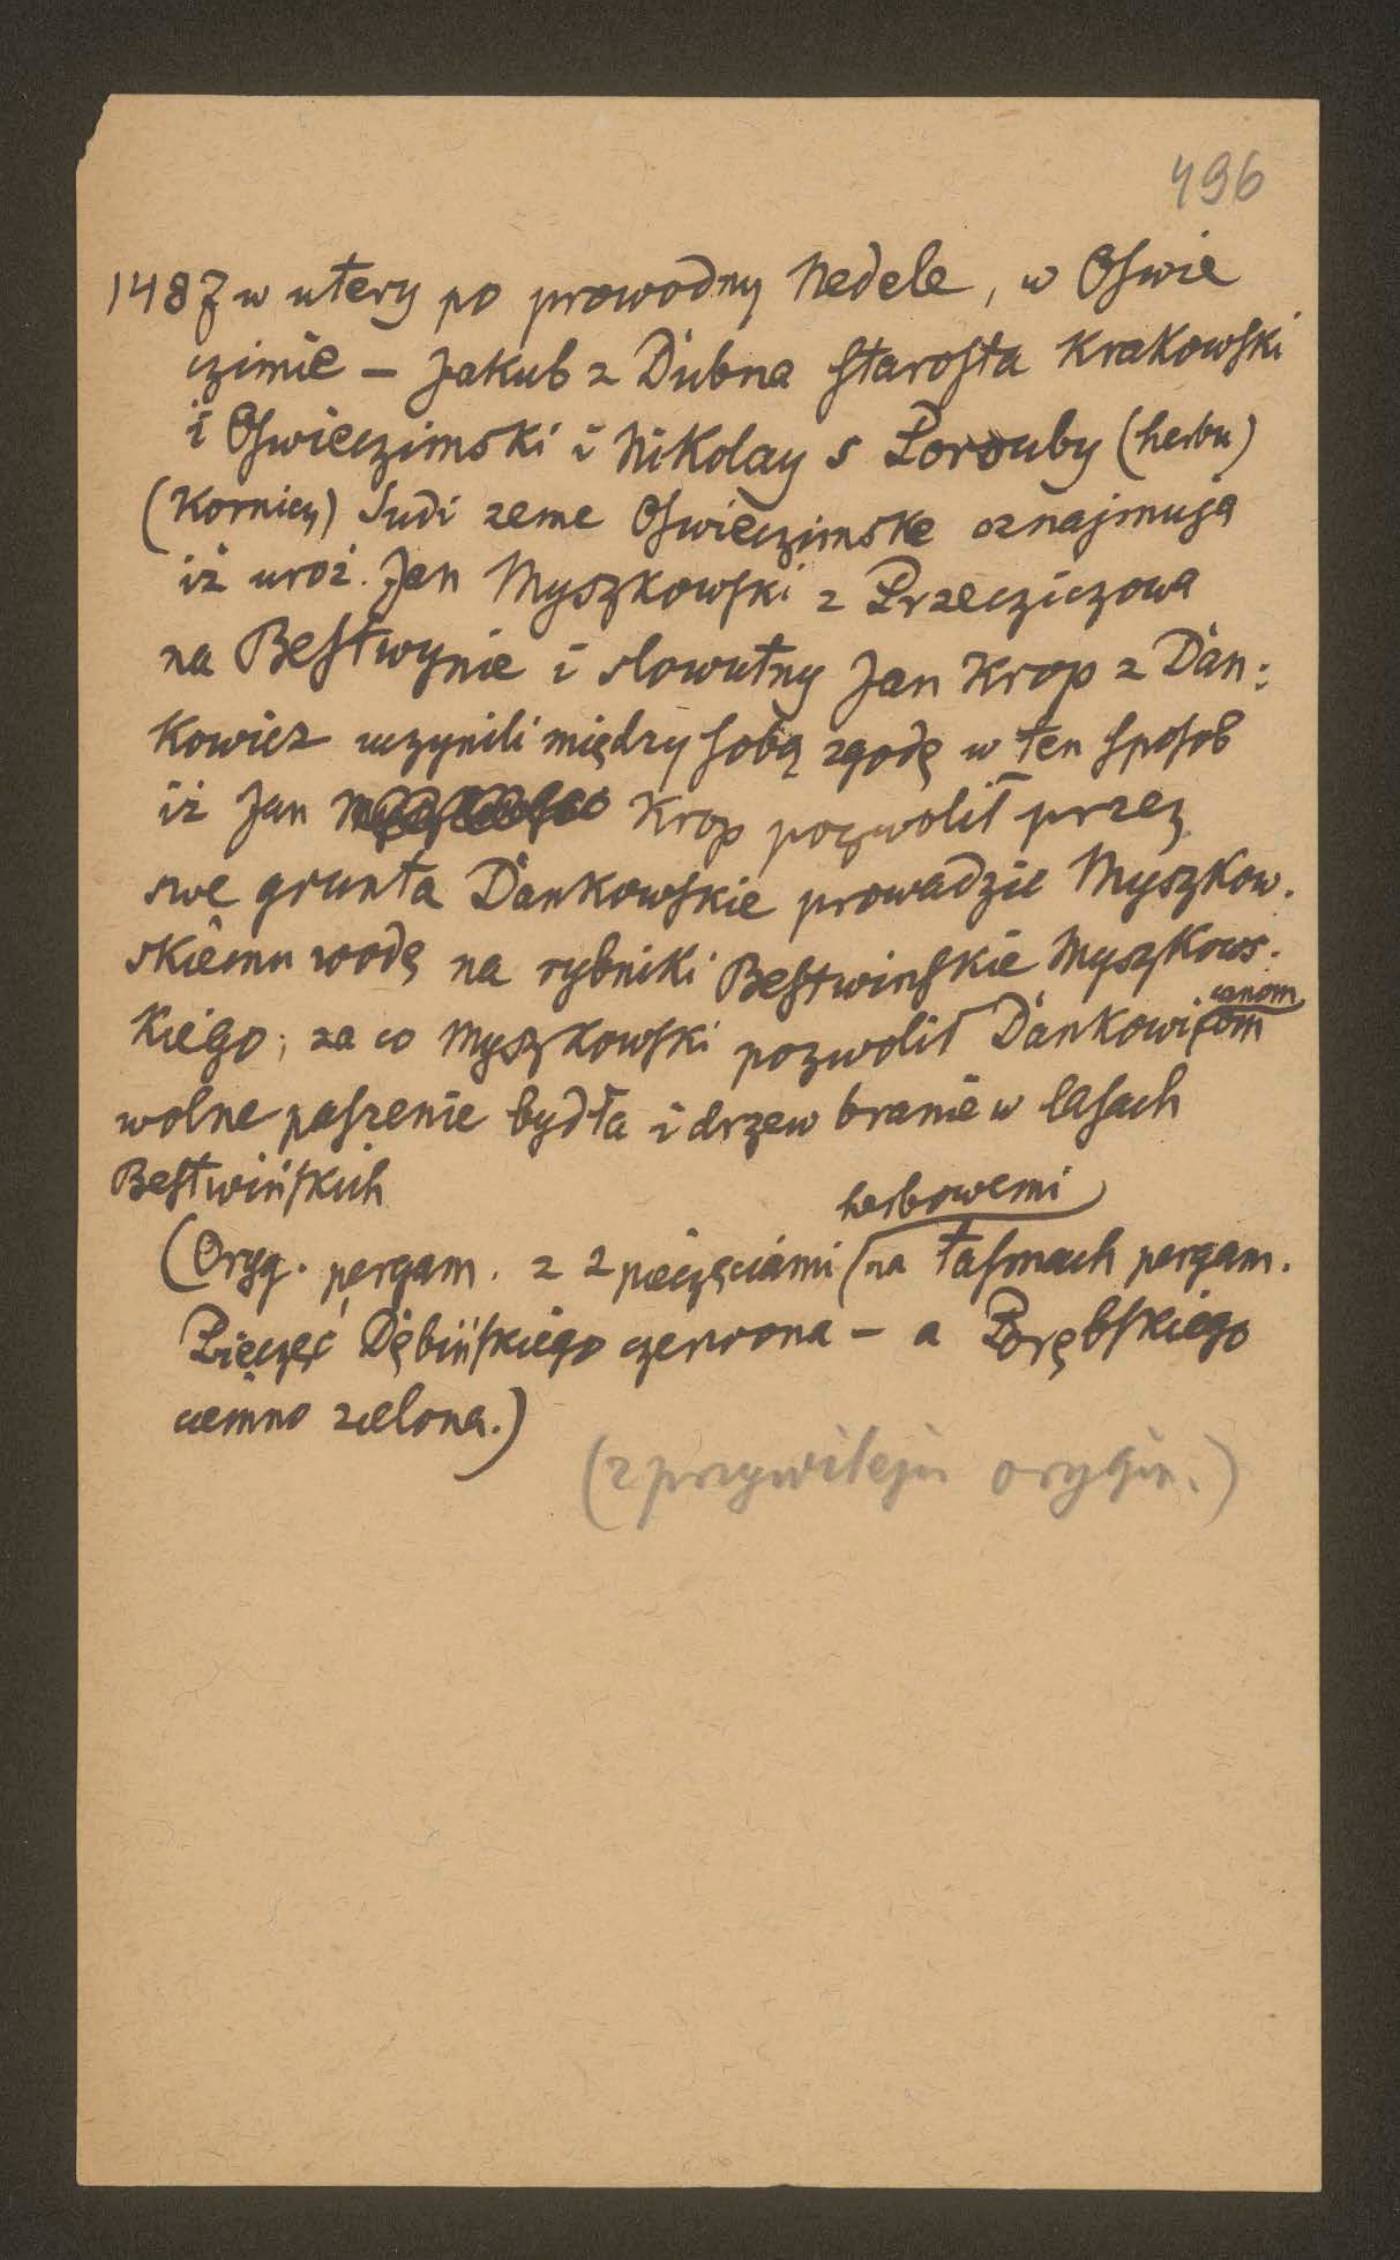 496
1487 w utery po prowodny Nedele, w Oswie
czimie – Jakub z Dubna starosta Krakowski
i Oswieczimski i Nikolay s Porouby (herbu)
(Kornicz) Sudi zeme Oswieczimske oznajmują
iż uroż. Jan Myszkowski z Przecziczowa
na Bestwynie i slowutny Jan Krop z Dan:
kowicz uczynili między sobą zgodę w ten sposob
iż Jan Krop pozwolił przez
swe grunta Dankowskie prowadzić Myszkow.
skiemu wodę na rybniki Bestwinskie Myszkows.
kiego; za co Myszkowski pozwolił Dankowiczom
czanom
wolne paszenie bydła i drzew branie w lasach
Bestwińskich
herbowemi
(Oryg. pergam. z 2 pieczęciami na tasmach pergam.
Pieczęć Dębińskiego czerwona – a Porębskiego
ciemno zielona.)
(z przywileju orygin.)